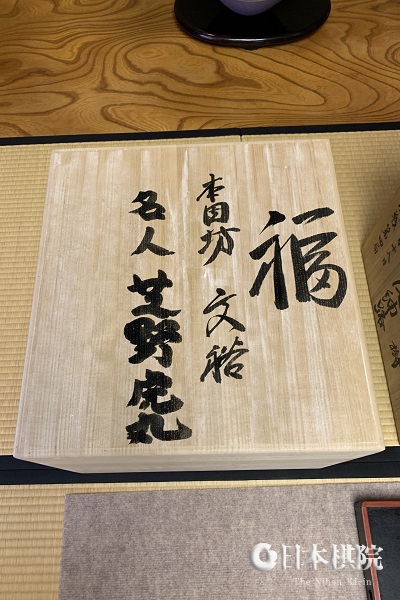 福
本因坊 文裕
名人 芝野虎丸
日本棋院
The Nihon Kiin